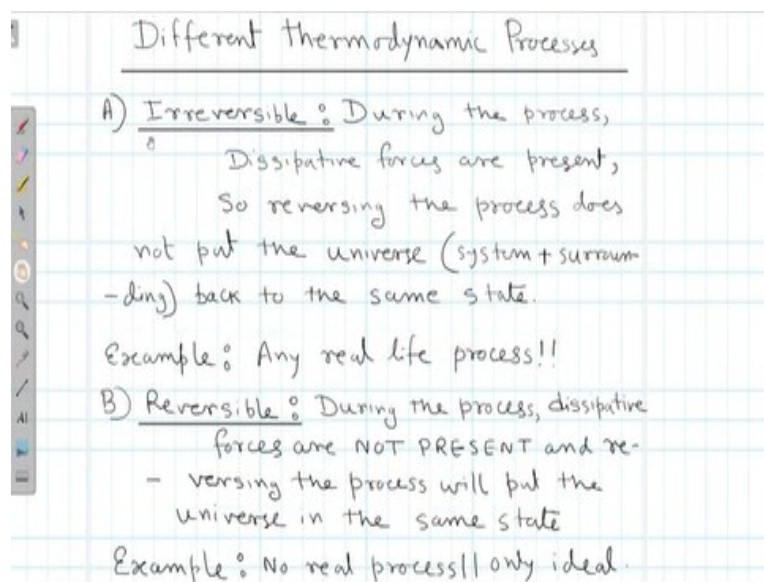 Different thermodynamic Processes
A) Irreversible: During the process,
Dissipative forces are present,
So reversing the process does
not put the universe (system + surroun-
-ding) back to the same state.
Example: Any real life process!!
B) Reversible: During the process, dissipative
forces are NOT PRESENT and re-
- versing the process will put the
universe in the same state
Example: No real process!! only ideal.
AI